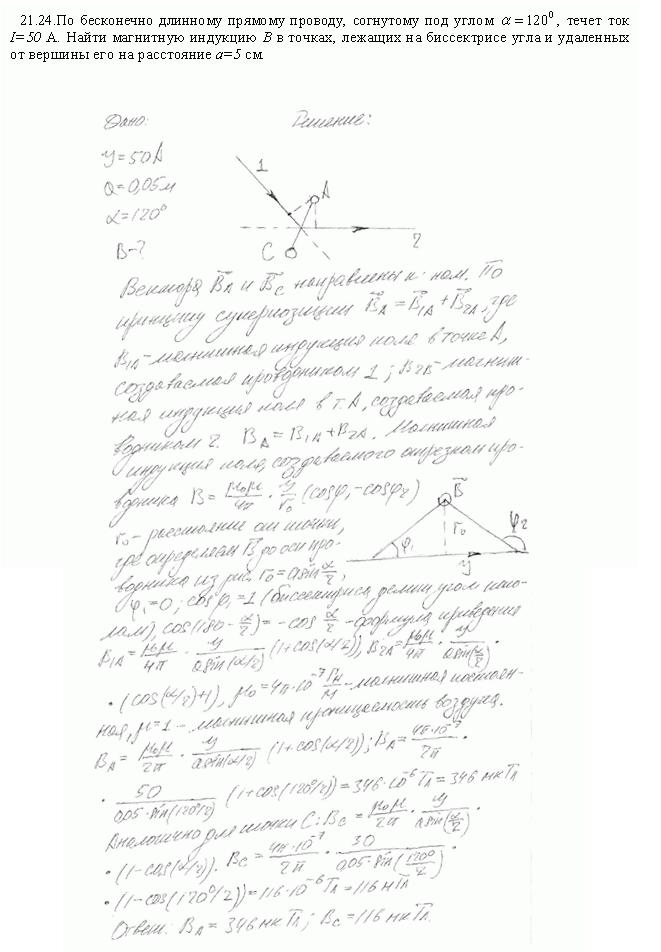 21.24.По бесконечно длинному прямому проводу, согнутому под углом α = 120⁰, течет ток
I=50 А. Найти магнитную индукцию B в точках, лежащих на биссектрисе угла и удаленных
от вершины его на расстояние a=5 см.
Дано: Решение:
У=50А
a=0,05м
α=120⁰
B-?
1
A
C
2
Вектора B̅A и B̅C направлены к нам. По
принципу суперпозиции B̅A = B̅1A + B̅2A, где
B1A - магнитная индукция поля в точке A,
создаваемая проводником 1; B2A - магнит-
ная индукция поля в т. A, создаваемая про-
водником 2. BA = B1A + B2A. Магнитная
индукция поля, создаваемого отрезком про-
водника B = μ0μ/4π · У/r0 (cosφ1 - cosφ2)
B̅
r0
φ1
φ2
У
r0 - расстояние от точки,
где определяем B̅ до оси про-
водника из рис. r0 = a sin α/2,
φ1 = 0; cosφ1 = 1 (биссектриса делит угол попо-
лам), cos(180 - α/2) = -cos α/2 - формула приведения
B1A = μ0μ/4π · У/a sin(α/2) (1+cos(α/2)); B2A = μ0μ/4π · У/a sin(α/2) ·
· (cos(α/2)+1), μ0 = 4π·10⁻⁷ Гн/м - магнитная постоян-
ная, μ=1 - магнитная проницаемость воздуха.
BA = μ0μ/2π · У/a sin(α/2) (1+cos(α/2)); BA = 4π·10⁻⁷/2π ·
· 50/0,05·sin(120⁰/2) (1+cos(120⁰/2)) = 346·10⁻⁶ Тл = 346 мкТл
Аналогично для точки C: BC = μ0μ/2π · У/a sin(α/2) ·
· (1-cos(α/2)). BC = 4π·10⁻⁷/2π · 30/0,05·sin(120⁰/2) ·
· (1-cos(120⁰/2)) = 116·10⁻⁶ Тл = 116 мТл
Ответ: BA = 346 мкТл; BC = 116 мкТл.